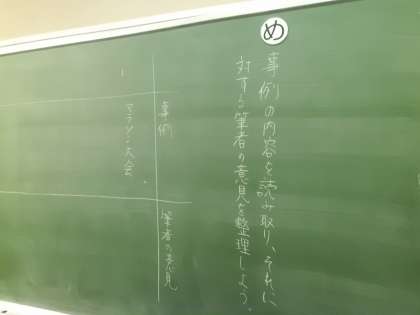 め
事例の内容を読み取り、それに
対する筆者の意見を整理しよう。
事例
筆者の意見
マラソン大会